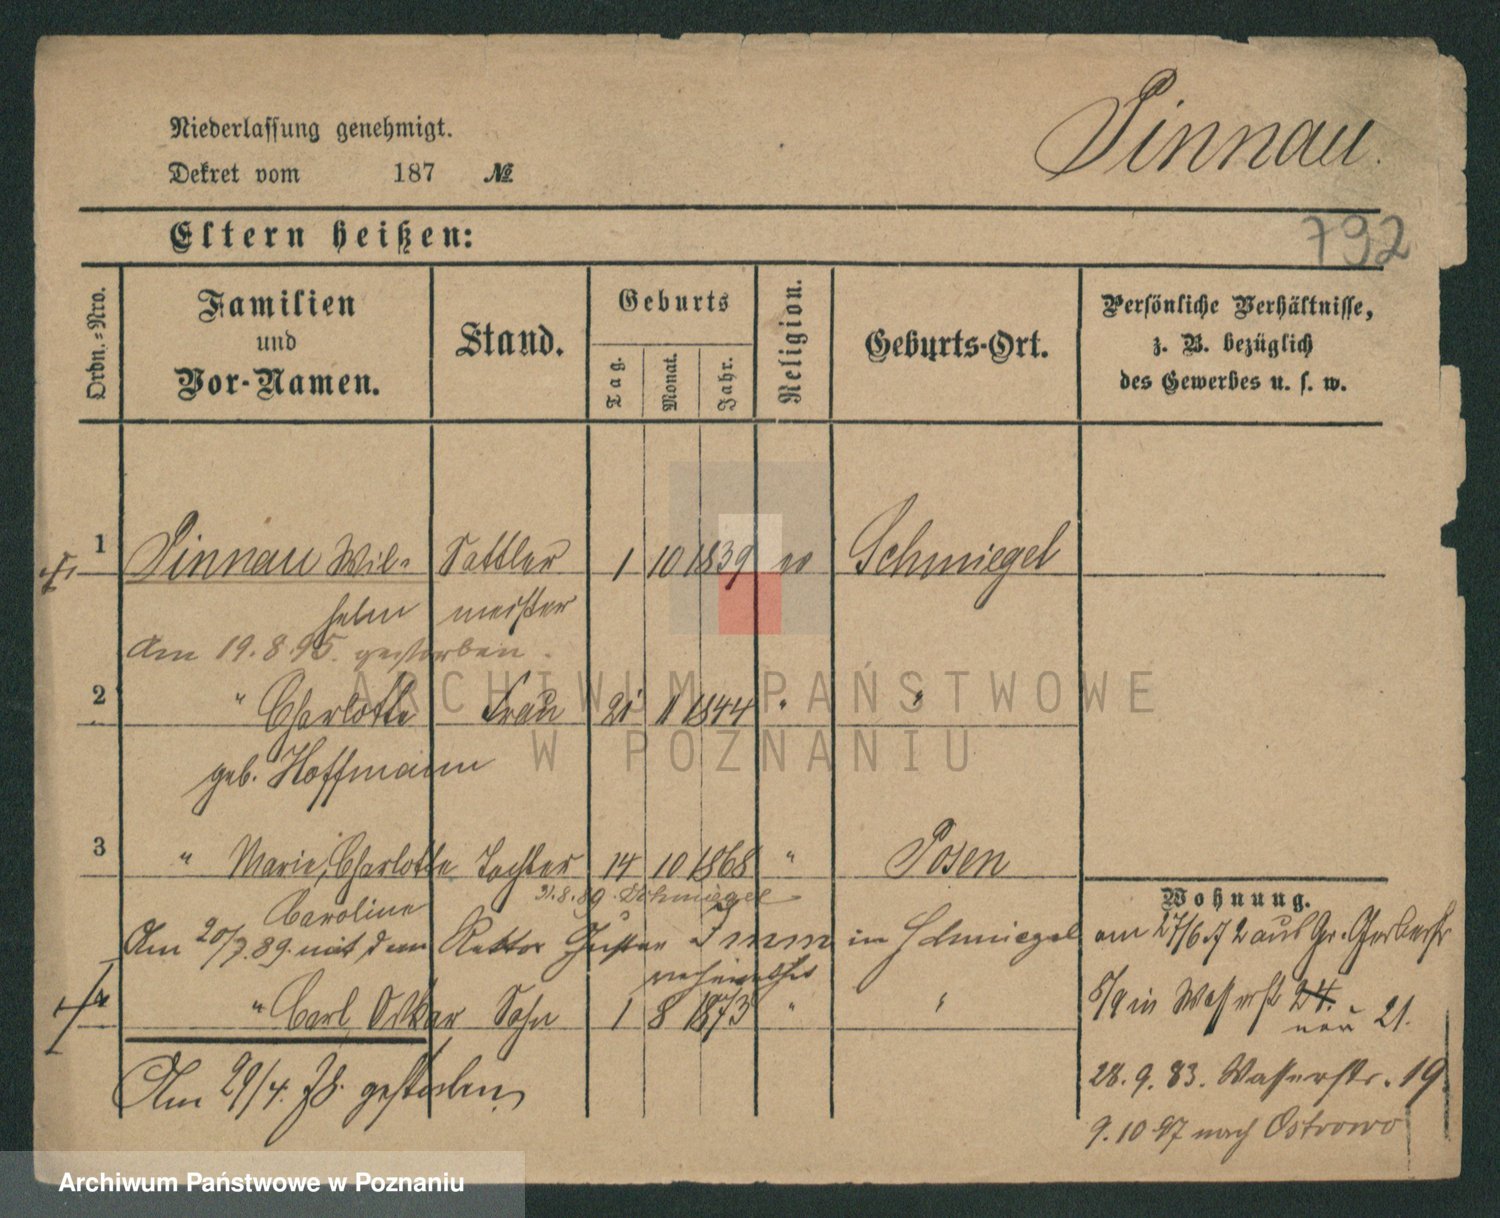 Pinnau.
Niederlassung genehmigt.
Dekret vom 187 №
792
Eltern heißen:
Ordn.-Nro.
Familien und Vor-Namen.
Stand.
Geburts
Tag.
Monat.
Jahr.
Religion.
Geburts-Ort.
Persönliche Verhältnisse,
z. B. bezüglich
des Gewerbes u. s. w.
1 Pinnau Wil- Sattler 1 10 1839 ev Schmiegel
helm meister
Am 19.8.95. gestorben.
2 " Charlotte Frau 21 11 1844 " "
geb. Hoffmann
3 " Marie, Charlotte Tochter 14 10 1868 " Posen
Caroline
21.8.89. Schmiegel
Am 20/7.89. mit dem Rektor Gustav Imm in Schmiegel
verheirathet
4 " Carl Oskar Sohn 1 8 1873 " "
Am 29/4. 78. gestorben
Wohnung.
am 27/6.72 aus Gr. Gerberstr
8/9 in Wasserstr 24.
neu 21.
28.9.83. Wasserstr. 19.
9.10.97 nach Ostrowo
ARCHIWUM PAŃSTWOWE
W POZNANIU
Archiwum Państwowe w Poznaniu